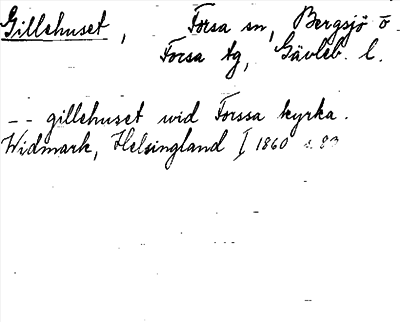 Gillehuset, Forsa sn, Bergsjö o.
Forsa tg, Gävleb. l.
-- gillehuset wid Forssa kyrka.
Widmark, Helsingland I 1860 s. 83